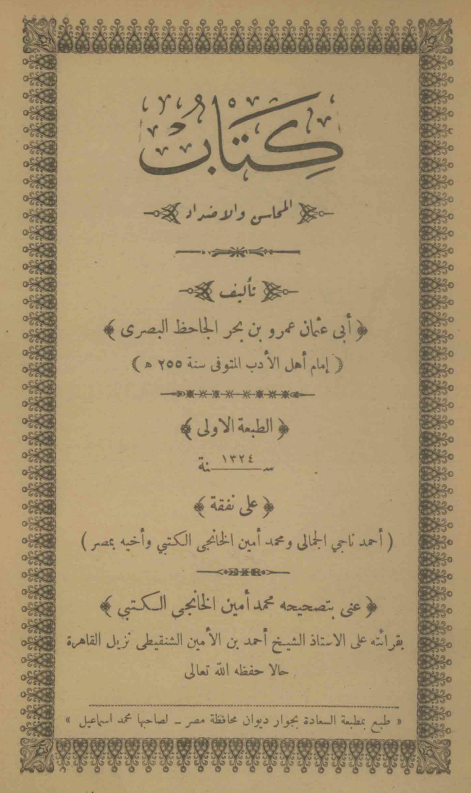 كِتَابُ
المحاسن والاضداد
تأليف
﴿ أبى عثمان عمرو بن بحر الجاحظ البصرى ﴾
( إمام أهل الأدب المتوفى سنة ٢٥٥ ه )
﴿ الطبعة الاولى ﴾
سنة ١٣٢٤
﴿ على نفقة ﴾
( أحمد ناجي الجمالى ومحمد أمين الخانجى الكتبي وأخيه بمصر )
﴿ عنى بتصحيحه محمد أمين الخانجى الكتبي ﴾
بقرائته على الاستاذ الشيخ أحمد بن الأمين الشنقيطى نزيل القاهرة
حالا حفظه الله تعالى
« طبع بمطبعة السعادة بجوار ديوان محافظة مصر ــ لصاحبها محمد اسماعيل »